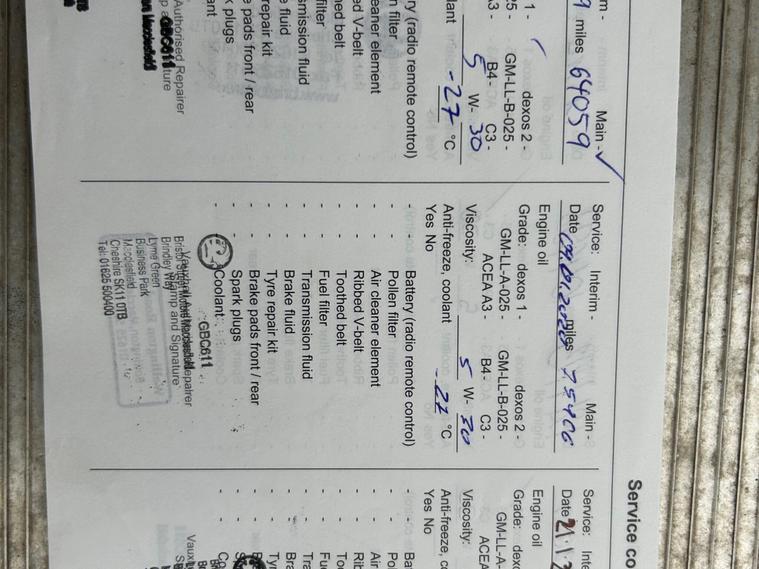 Service co
m - Main - ✓
9 miles 64059
1 - dexos 2 -
25 - GM-LL-B-025 -
A3 - B4 - C3 -
5 W- 30
olant -27 °C
ery (radio remote control)
n filter
cleaner element
d V-belt
hed belt
filter
smission fluid
e fluid
repair kit
e pads front / rear
k plugs
ant
Authorised Repairer
Service: Interim - Main -
Date miles 75406
Engine oil
Grade: dexos 1 - dexos 2 -
GM-LL-A-025 - GM-LL-B-025 -
ACEA A3 - B4 - C3 -
Viscosity: 5 W- 30
Anti-freeze, coolant °C
Yes No
- - Battery (radio remote control)
- - Pollen filter
- - Air cleaner element
- - Ribbed V-belt
- - Toothed belt
- - Fuel filter
- - Transmission fluid
- - Brake fluid
- - Tyre repair kit
- - Brake pads front / rear
- - Spark plugs
- - Coolant
GBC611
Stamp and Signature
Brindley Way
Lyme Green
Business Park
Macclesfield
Cheshire SK11 0TB
Tel: 01625 500400
Service: Inte
Date 21.1.2
Engine oil
Grade: dexo
GM-LL-A-
ACEA
Viscosity:
Anti-freeze, co
Yes No
- - Ba
- - Pol
- - Air
- - Rib
- - Too
- - Fue
- - Tra
- - Bra
- - Tyr
- - Co
Vauxh